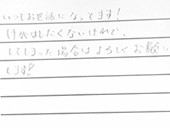 いつもお世話になってます!
けがはしたくないけれど、
してしまった場合はよろしくお願い
します!